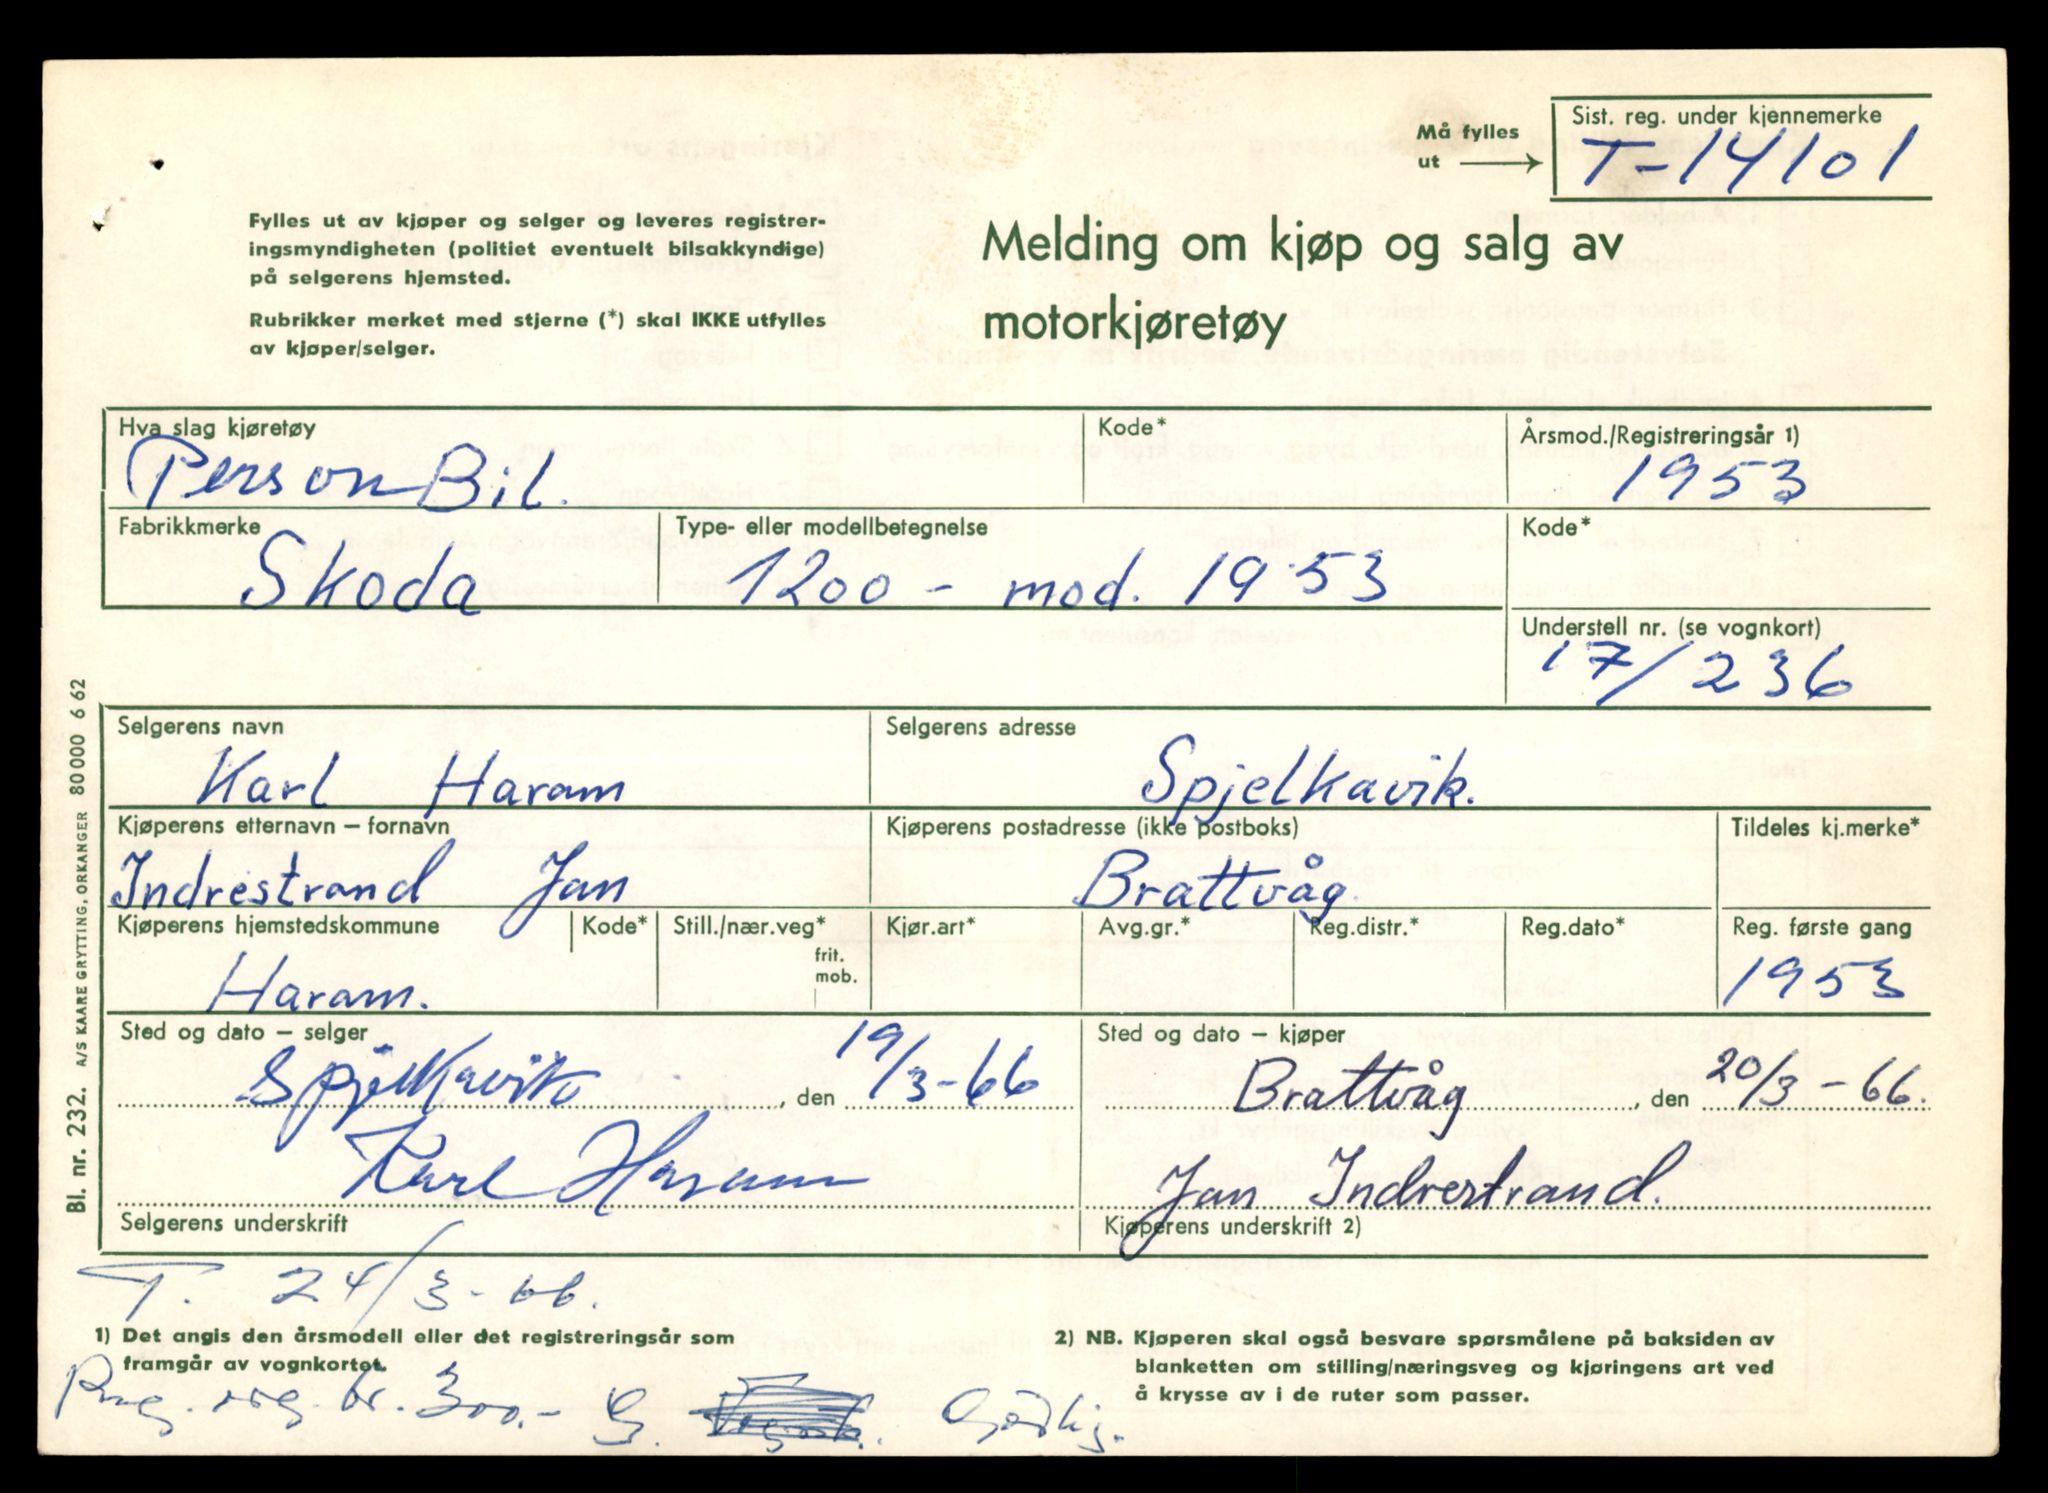 Må fylles ut →
Sist. reg. under kjennemerke
T-14101
Fylles ut av kjøper og selger og leveres registrer-
ingsmyndigheten (politiet eventuelt bilsakkyndige)
på selgerens hjemsted.
Rubrikker merket med stjerne (*) skal IKKE utfylles
av kjøper/selger.
Melding om kjøp og salg av
motorkjøretøy
Hva slag kjøretøy
Person Bil.
Kode*
Årsmod./Registreringsår 1)
1953
Fabrikkmerke
Skoda
Type- eller modellbetegnelse
1200 - mod. 1953
Kode*
Understell nr. (se vognkort)
17/236
Selgerens navn
Karl Haram
Selgerens adresse
Spjelkavik.
Kjøperens etternavn – fornavn
Indrestrand Jan
Kjøperens postadresse (ikke postboks)
Brattvåg.
Tildeles kj.merke*
Kjøperens hjemstedskommune
Haram.
Kode*
Still./nær.veg*
frit.
mob.
Kjør.art*
Avg.gr.*
Reg.distr.*
Reg.dato*
Reg. første gang
1953
Sted og dato – selger
Spjelkavik, den 19/3-66
Karl Haram
Selgerens underskrift
Sted og dato – kjøper
Brattvåg, den 20/3-66.
Jan Indrestrand.
Kjøperens underskrift 2)
T. 24/3-66.
1) Det angis den årsmodell eller det registreringsår som
framgår av vognkortet.
2) NB. Kjøperen skal også besvare spørsmålene på baksiden av
blanketten om stilling/næringsveg og kjøringens art ved
å krysse av i de ruter som passer.
kr. 300.- G.
Bl. nr. 232. A/S KAARE GRYTTING, ORKANGER 80000 6 62